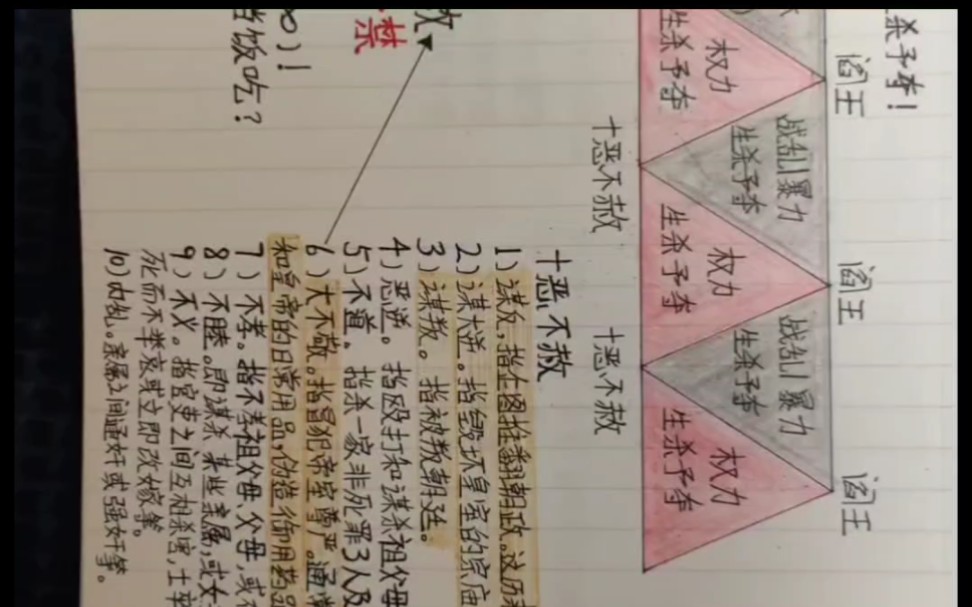 生杀予夺！
阎王
阎王
阎王
战乱暴力
生杀予夺
战乱暴力
生杀予夺
权力
生杀予夺
权力
生杀予夺
权力
生杀予夺
十恶不赦
十恶不赦
禁
饭吃？
十恶不赦
1）谋反，指企图推翻朝政。这历
2）谋大逆。指毁坏皇室的宗庙
3）谋叛。指被叛朝廷。
4）恶逆。指殴打和谋杀祖父母
5）不道。指杀一家非死罪3人及
6）大不敬。指冒犯帝室尊严。通常
和皇帝的日常用品，伪造御用药品
7）不孝。指不孝祖父母、父母，或在
8）不睦。即谋杀某些亲属，或女
9）不义。指官吏之间互相杀害，士卒
死而不举哀或立即改嫁等。
10）内乱。亲属之间通奸或强奸等。